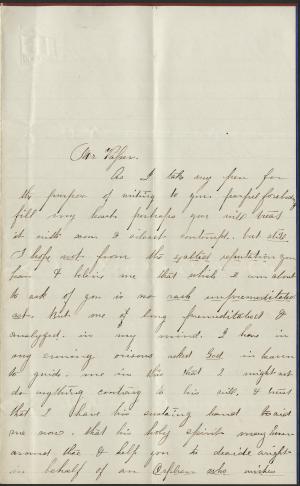 Mr Vassar.
As I take my pen for
the purpose of writing to you fearful forebodings
fill my heart perhaps you will treat
it with scorn & silent contempt. but still
I hope not. from the exalted reputation you
have & believe me that which I am about
to ask of you is no rash unpremeditated
act. But one of long premeditated &
analyzed. in my mind. I have in
my evening orisons asked God in heaven
to guide me in this that I might not
do anything contrary to his will. & trust
that I have his sustaining hand to aid
me now. that his holy spirit may hover
around thee & help you to decide aright
in behalf of an Orphan who wishes